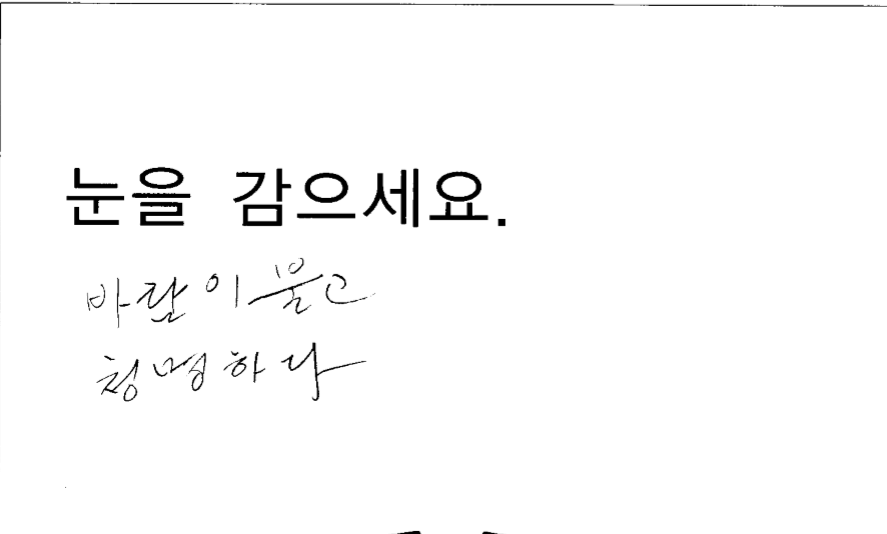 눈을 감으세요.
바람이 불고
청명하다